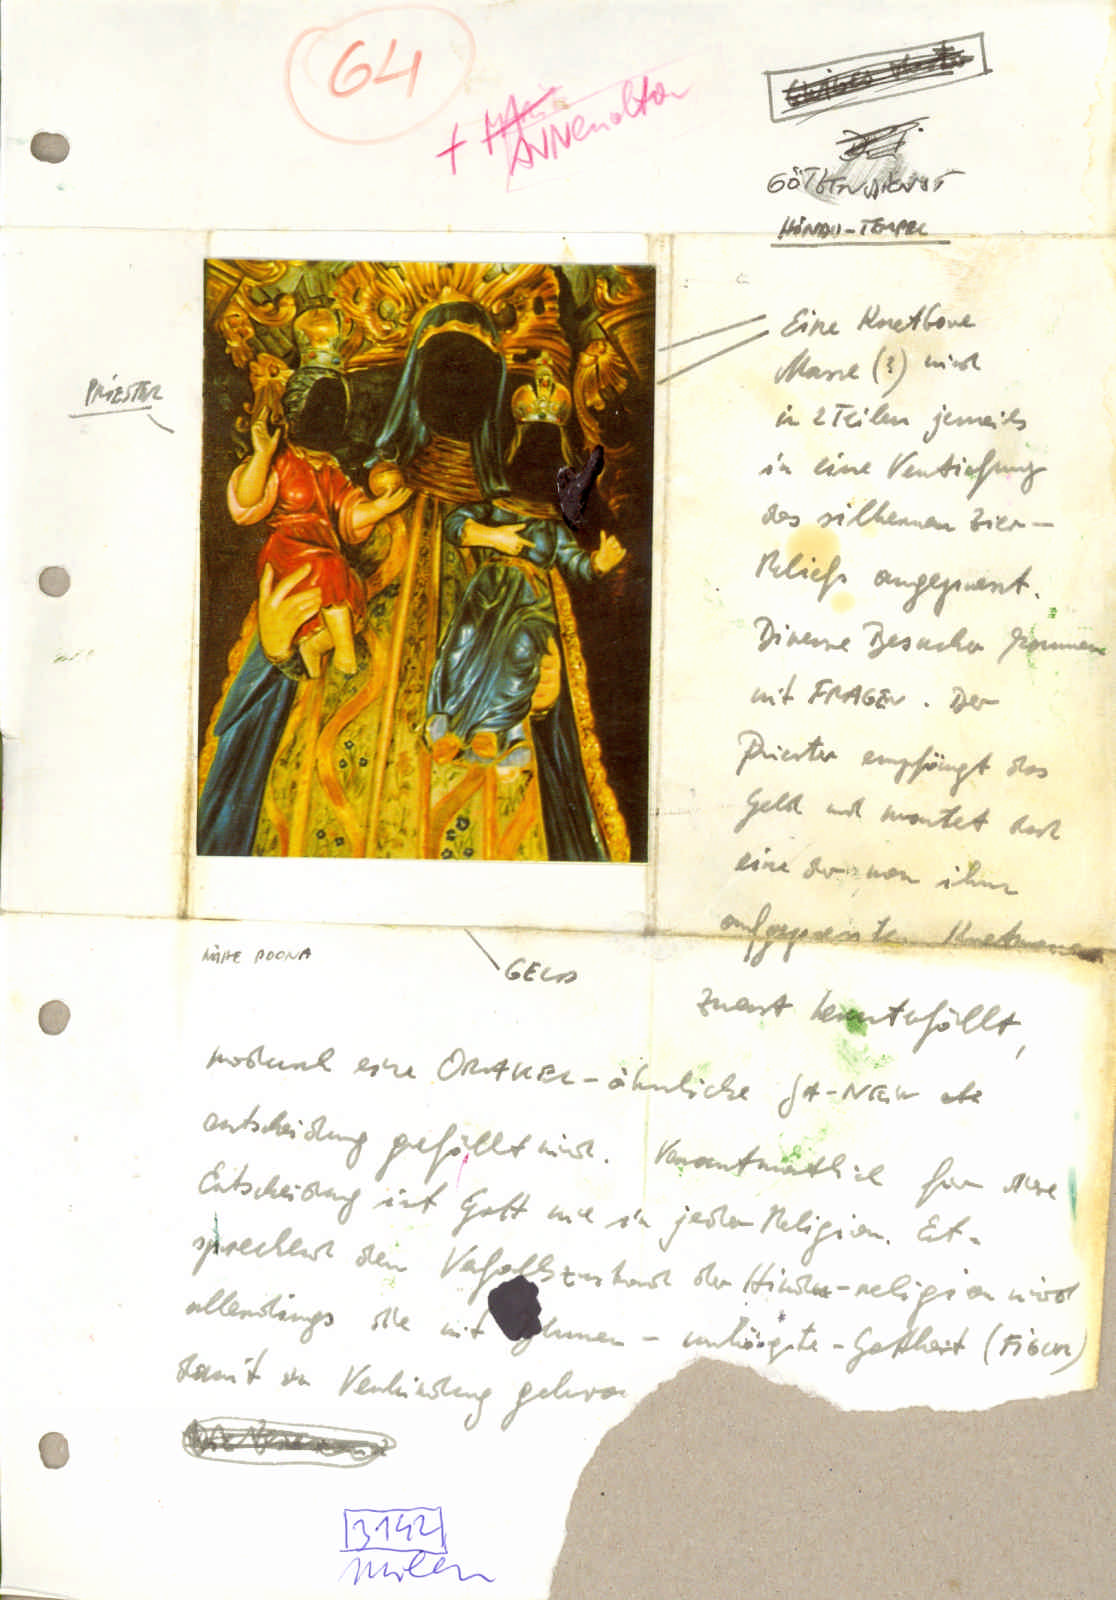 64
+
ANNenaltar
GÖTZENDIENST
HINDU-TEMPEL
PRIESTER
Eine Knetbare
Masse (?) wird
in 2 Teilen jeweils
in eine Vertiefung
des silbernen Zier-
Reliefs angepresst.
Diverse Besucher kommen
mit FRAGEN. Der
Priester empfängt das
Geld und wartet dass
eine der von ihm
aufgepressten Knetmassen
NÄHE POONA
GELD
zuerst herunterfällt,
wodurch eine ORAKEL-ähnliche JA-NEIN etc
entscheidung gefällt wird. Verantwortlich für diese
Entscheidung ist Gott wie in jeder Religion. Ent-
sprechend dem Verfallszustand der Hindu-religion wird
allerdings die mit Blumen - umhängte - Gottheit (FIGUR)
damit in Verbindung gebra
3142